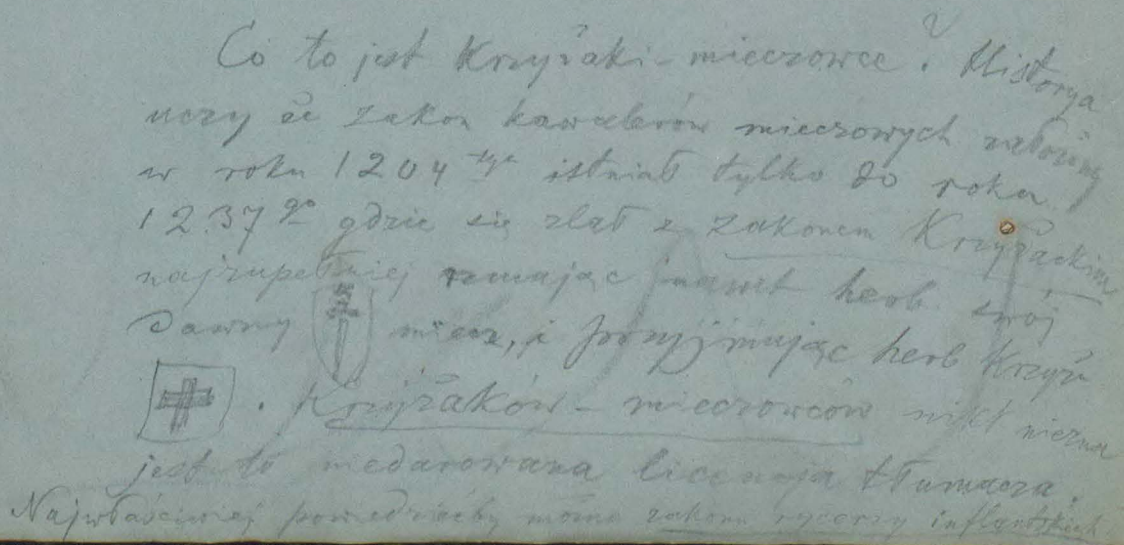 Co to jest Krzyżaki-mieczowce? Historya
uczy że zakon kawalerów mieczowych założony
w roku 1204 istniał tylko do roku
1237go gdzie się zlał z zakonem Krzyżackim
najzupełniej nawet herb swój
dawny miecz, i przyjmując herb Krzyż
. Krzyżaków-mieczowców nikt niezna
jest to niedarowana licencja tłumacza.
Najwłaściwiej powiedziećby można zakonu rycerzy inflantskich.